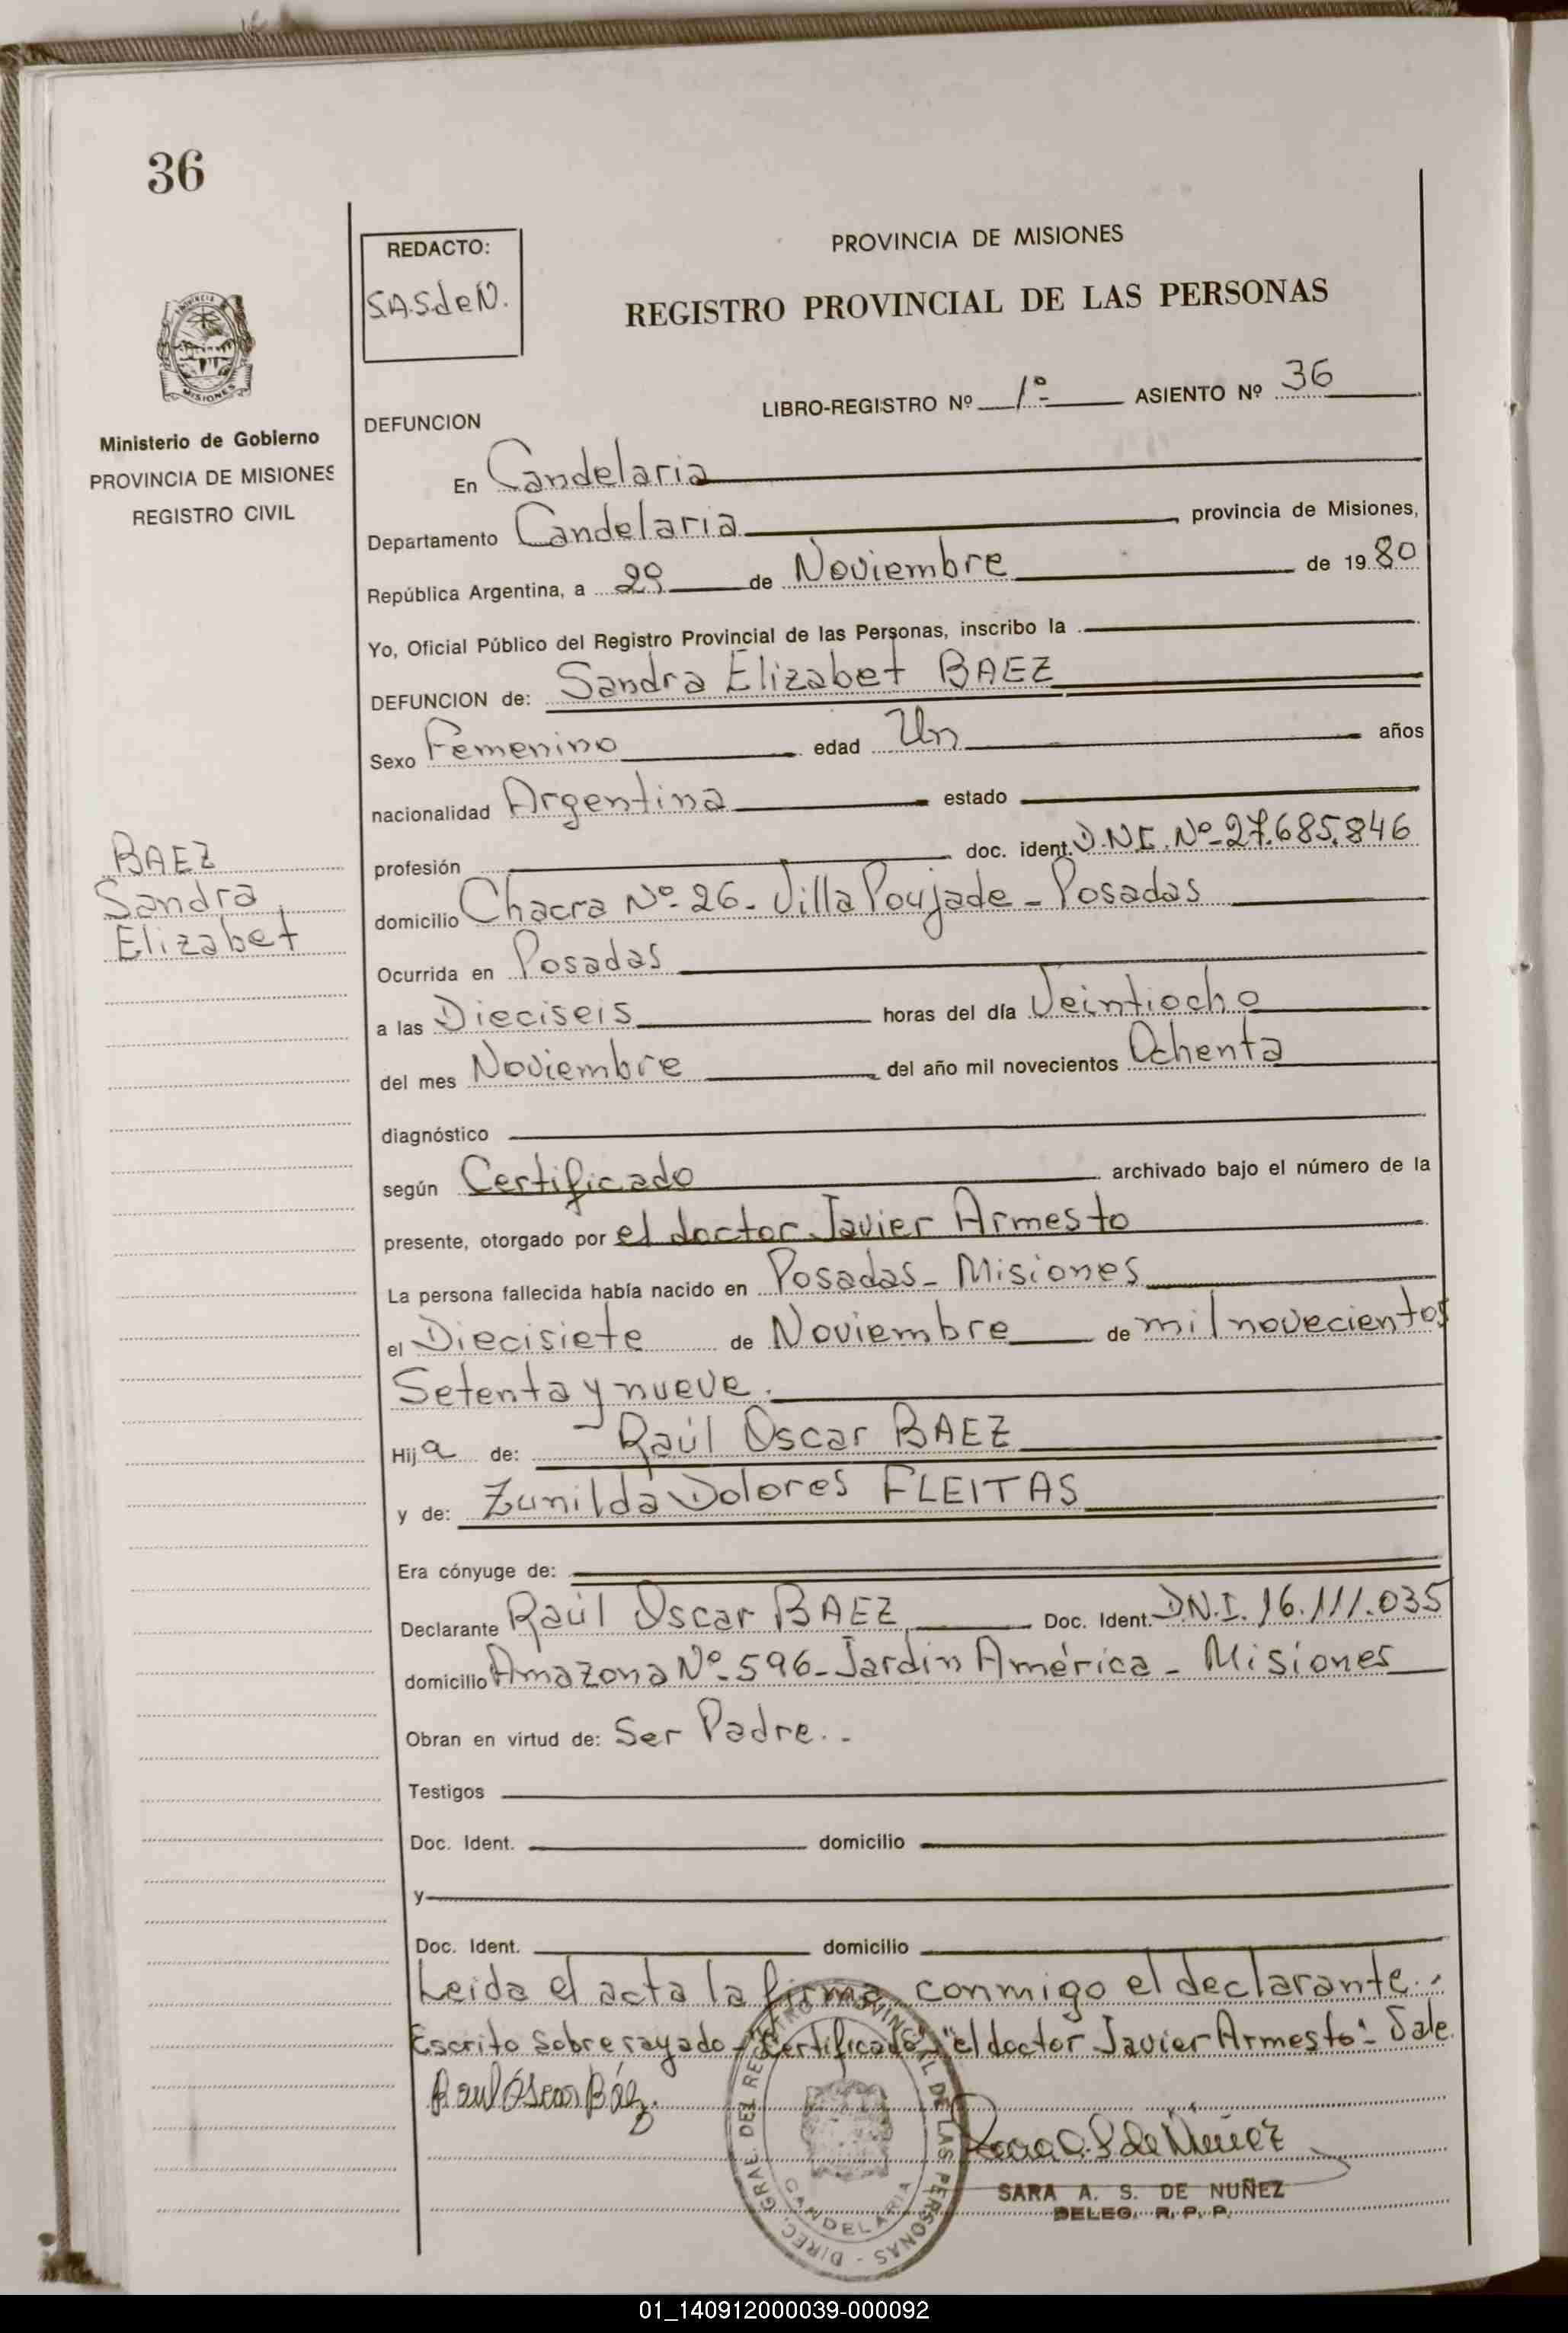 36
REDACTO:
S.A.S.deN.
PROVINCIA DE MISIONES
REGISTRO PROVINCIAL DE LAS PERSONAS
PROVINCIA
MISIONES
Ministerio de Gobierno
PROVINCIA DE MISIONES
REGISTRO CIVIL
LIBRO-REGISTRO Nº 1º- ASIENTO Nº 36
DEFUNCION
En Candelaria
Departamento Candelaria provincia de Misiones,
República Argentina, a 29 de Noviembre de 1980
Yo, Oficial Público del Registro Provincial de las Personas, inscribo la
DEFUNCION de: Sandra Elizabet BAEZ
Sexo Femenino edad Un años
nacionalidad Argentina estado
profesión doc. ident. D.N.I. Nº-27.685.846
BAEZ
Sandra
Elizabet
domicilio Chacra Nº-26- Villa Poujade - Posadas
Ocurrida en Posadas
a las Dieciseis horas del día Veintiocho
del mes Noviembre del año mil novecientos Ochenta
diagnóstico
según Certificado archivado bajo el número de la
presente, otorgado por el doctor Javier Armesto
La persona fallecida había nacido en Posadas- Misiones
el Diecisiete de Noviembre de mil novecientos
Setenta y nueve.
Hija de: Raúl Oscar BAEZ
y de: Zunilda Dolores FLEITAS
Era cónyuge de:
Declarante Raúl Oscar BAEZ Doc. Ident. D.N.I. 16.111.035
domicilio Amazona Nº-596- Jardín América - Misiones
Obran en virtud de: Ser Padre.-
Testigos
Doc. Ident. domicilio
y
Doc. Ident. domicilio
Leida el acta la firma conmigo el declarante.-
Escrito sobre rayado-"Certificado"-"el doctor Javier Armesto"- Vale.
Raul Oscar Báez
Sara A. S de Nuñez
SARA A. S. DE NUÑEZ
DELEG. R. P. P.
DIREC. GRAL. DEL REGISTRO PROVINCIAL DE LAS PERSONAS -
CANDELARIA
01_140912000039-000092